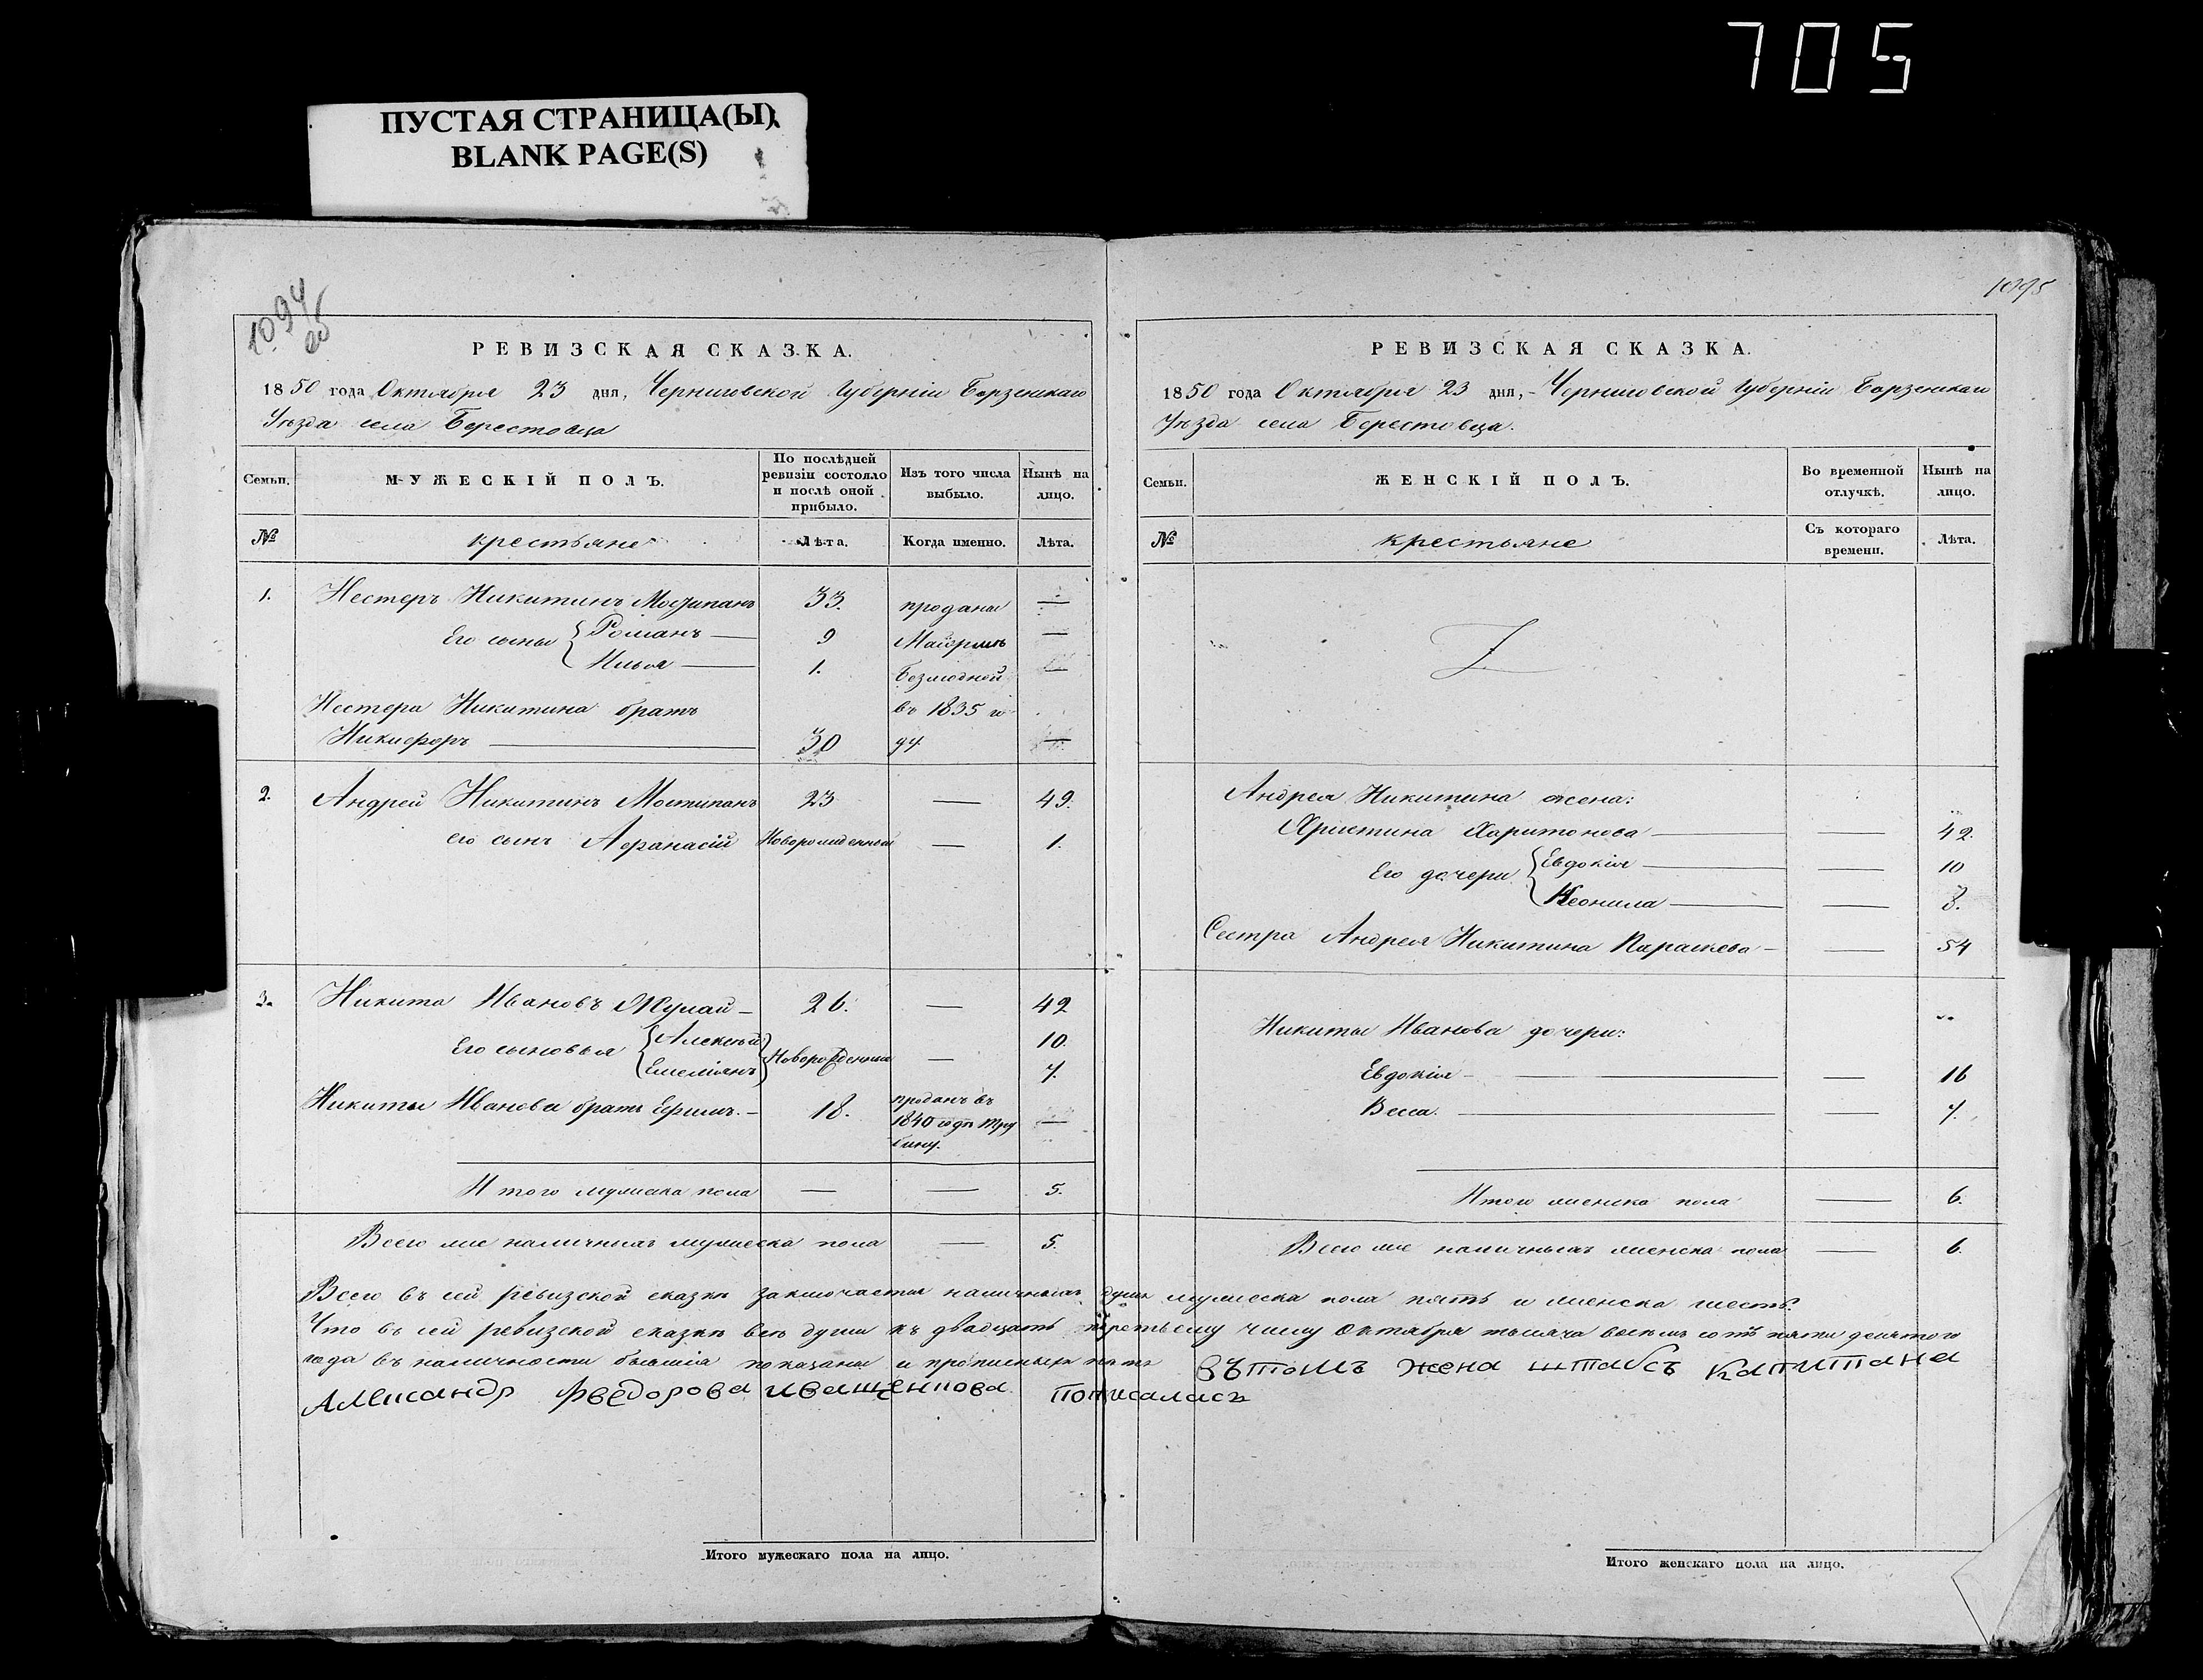 705
ПУСТАЯ СТРАНИЦА(Ы)
BLANK PAGE(S)
1094
об
РЕВИЗСКАЯ СКАЗКА.
1850 года Октября 23 дня, Черниговской Губерніи Борзенскаго
Уѣзда села Берестовца
Семьи.
МУЖЕСКІЙ ПОЛЪ.
По послѣдней ревизіи состояло и послѣ оной прибыло.
Изъ того числа выбыло.
Нынѣ на лицо.
№ крестьяне Лѣта. Когда именно. Лѣта.
1. Нестеръ Никитинъ Мостипанъ 33. проданы —
Его сыны Романъ — 9 Маіоршѣ —
Илья — 1. Безмодной —
Нестера Никитина братъ въ 1835 го
Никифоръ — 30 ду. —
2. Андрей Никитинъ Мостипанъ 23 — 49.
его сынъ Афанасій Новорожденный — 1.
3. Никита Ивановъ Жулай — 26. — 42
Его сыновья Алексѣй Новорожденные — 10.
Емеліянъ 7.
Никиты Иванова братъ Ефимъ. — 18. проданъ въ
1840 годѣ Тру —
бину.
Итого мужеска пола — — 5.
Всего же наличныхъ мужеска пола — 5.
1095
РЕВИЗСКАЯ СКАЗКА.
1850 года Октября 23 дня, Черниговской Губерніи Борзенскаго
Уѣзда села Берестовца.
Семьи.
ЖЕНСКІЙ ПОЛЪ.
Во временной отлучкѣ.
Нынѣ на лицо.
№ крестьяне Съ котораго времени. Лѣта.
Андрея Никитина жена:
Христина Харитонова — — 42.
Его дочери Евдокія — — 10
Неонила — — 8.
Сестра Андрея Никитина Параскева — — 54
Никиты Иванова дочери:
Евдокія — — 16
Васса. — — 7.
Итого женска пола — 6.
Всего же наличныхъ женска пола — 6.
Всего въ сей ревизской сказкѣ заключается наличныхъ душъ мужеска пола пять и женска шесть.
Что въ сей ревизской сказкѣ всѣ души къ двадцать третьему числу Октября тысяча восемь сотъ пяти десятого
года въ наличности бывшія показаны и прописныхъ нѣтъ вътомъ жена штабсъ капитана
Александр Фведорова иващенкова пописалась
Итого мужескаго пола на лицо.
Итого женскаго пола на лицо.